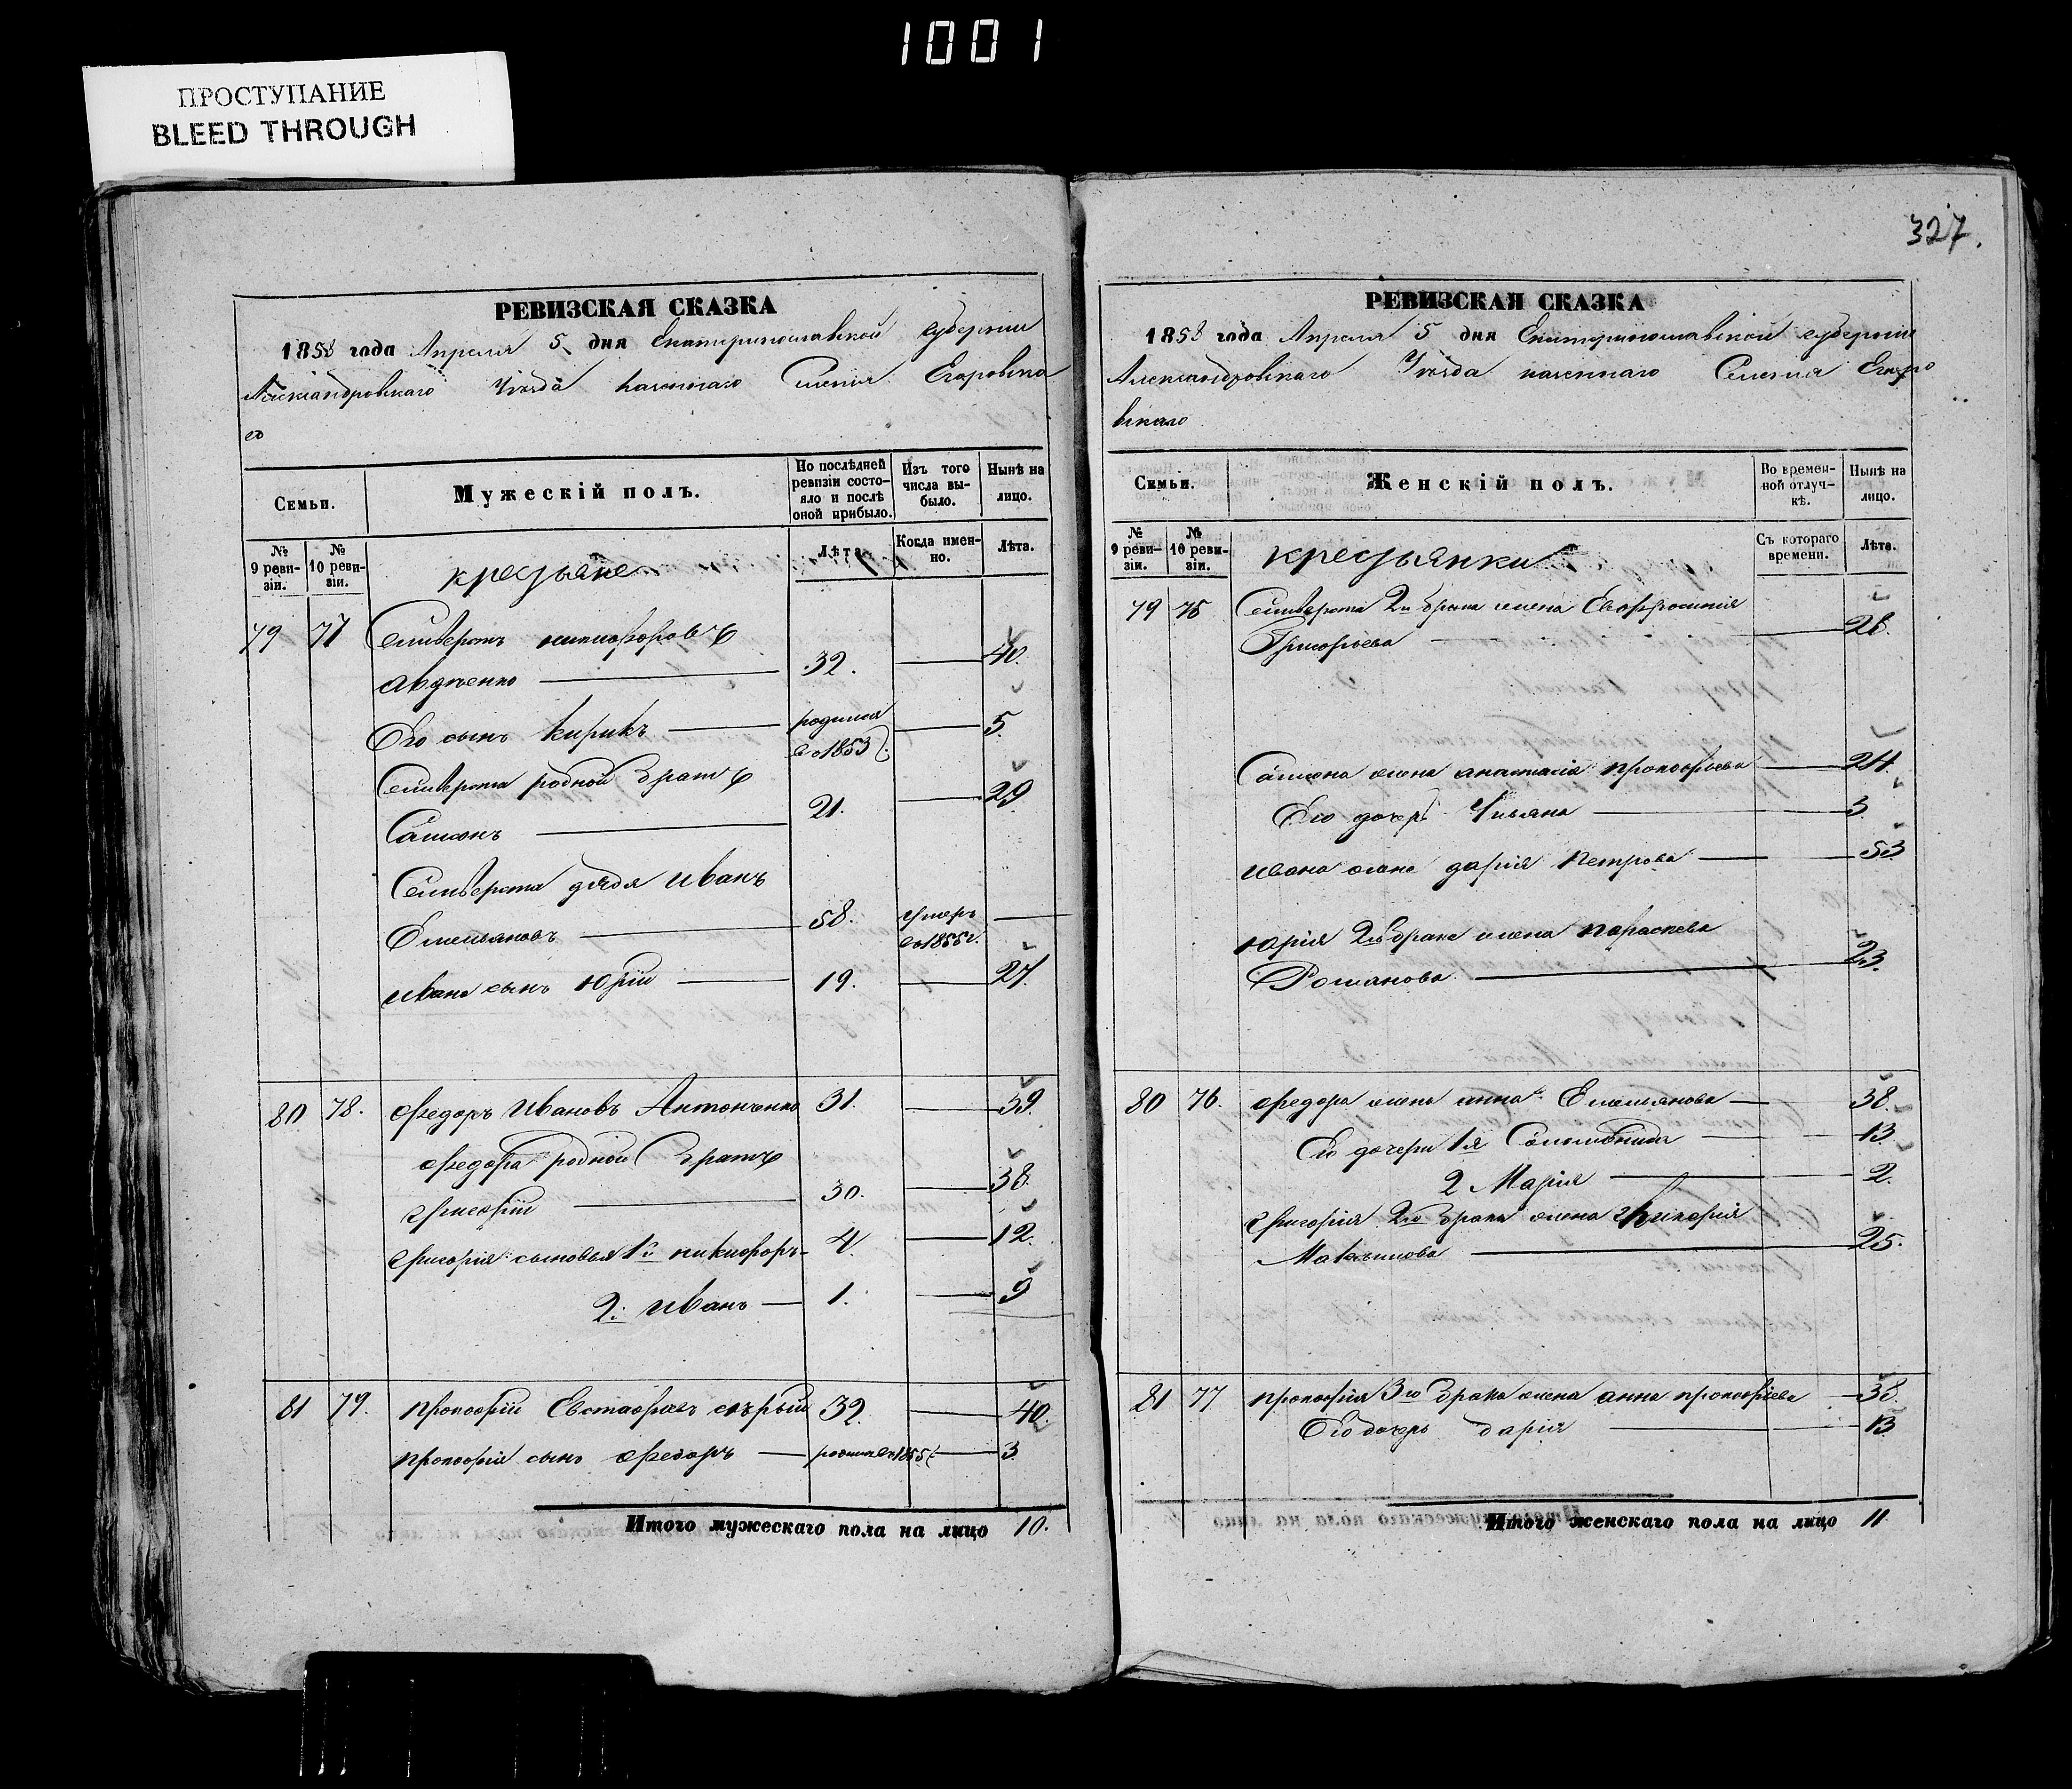 1001
ПРОСТУПАНИЕ
BLEED THROUGH
РЕВИЗСКАЯ СКАЗКА
1858 года Апреля 5 дня Екатеринославской губернии
Александровскаго Уѣзда казеннаго Селенія Егоровска
го
Семьи.
Мужескій полъ.
По послѣдней ревизіи состояло и послѣ оной прибыло.
Изъ того числа выбыло.
Ныпѣ на лицо.
№ 9 ревизіи.
№ 10 ревизіи.
крестьяне
Лѣта.
Когда именно.
Лѣта.
79 77 Селиверстъ никифоровъ
Авдѣенко 32. 40.
Его сынъ Кирикъ родился во 1853 г. 5.
Селиверста родной братъ
Самсонъ 21. 29
Селиверста дядя Иванъ
Емельяновъ 58. умеръ во 1855 г.
Ивана сынъ Юрій 19. 27.
80 78. Федоръ Ивановъ Антоненко 31. 39.
Федора родной братъ
Григорій 30. 38.
Григорія сыновья 1й никифоръ 4. 12.
2. Иванъ 1. 9
81 79. Прокофій Евстафіевъ сѣрый 32. 40.
Прокофія сынъ Федоръ родился во 1855 г. 3.
Итого мужескаго пола на лицо 10.
327.
РЕВИЗСКАЯ СКАЗКА
1858 года Апреля 5 дня Екатеринославской губерніи
Александровскаго Уѣзда казеннаго Селенія Егоро
вскаго
Семьи.
Женскій полъ.
Во временной отлучкѣ.
Нынѣ на лицо.
№ 9 ревизіи.
№ 10 ревизіи.
крестьянки
Съ котораго времени.
Лѣта.
79 75 Селиверста 2го брака жена Евфросинія
Григорьева 26.
Самсона жена анастасія прокофіева 24.
Его дочерь Ульяна 3
Ивана жена дарія Петрова 53
Юрія 2го брака жена параскева
Романова 23.
80 76. Федора жена анна Емельянова 38.
Его дочери 1я Соломонида 13.
2 Марія 2.
Григорія 2го брака жена гликерія
Максимова 25.
81 77 прокофія 3го брака жена анна прокофіева 38.
Его дочерь дарія 13
Итого женскаго пола на лицо 11